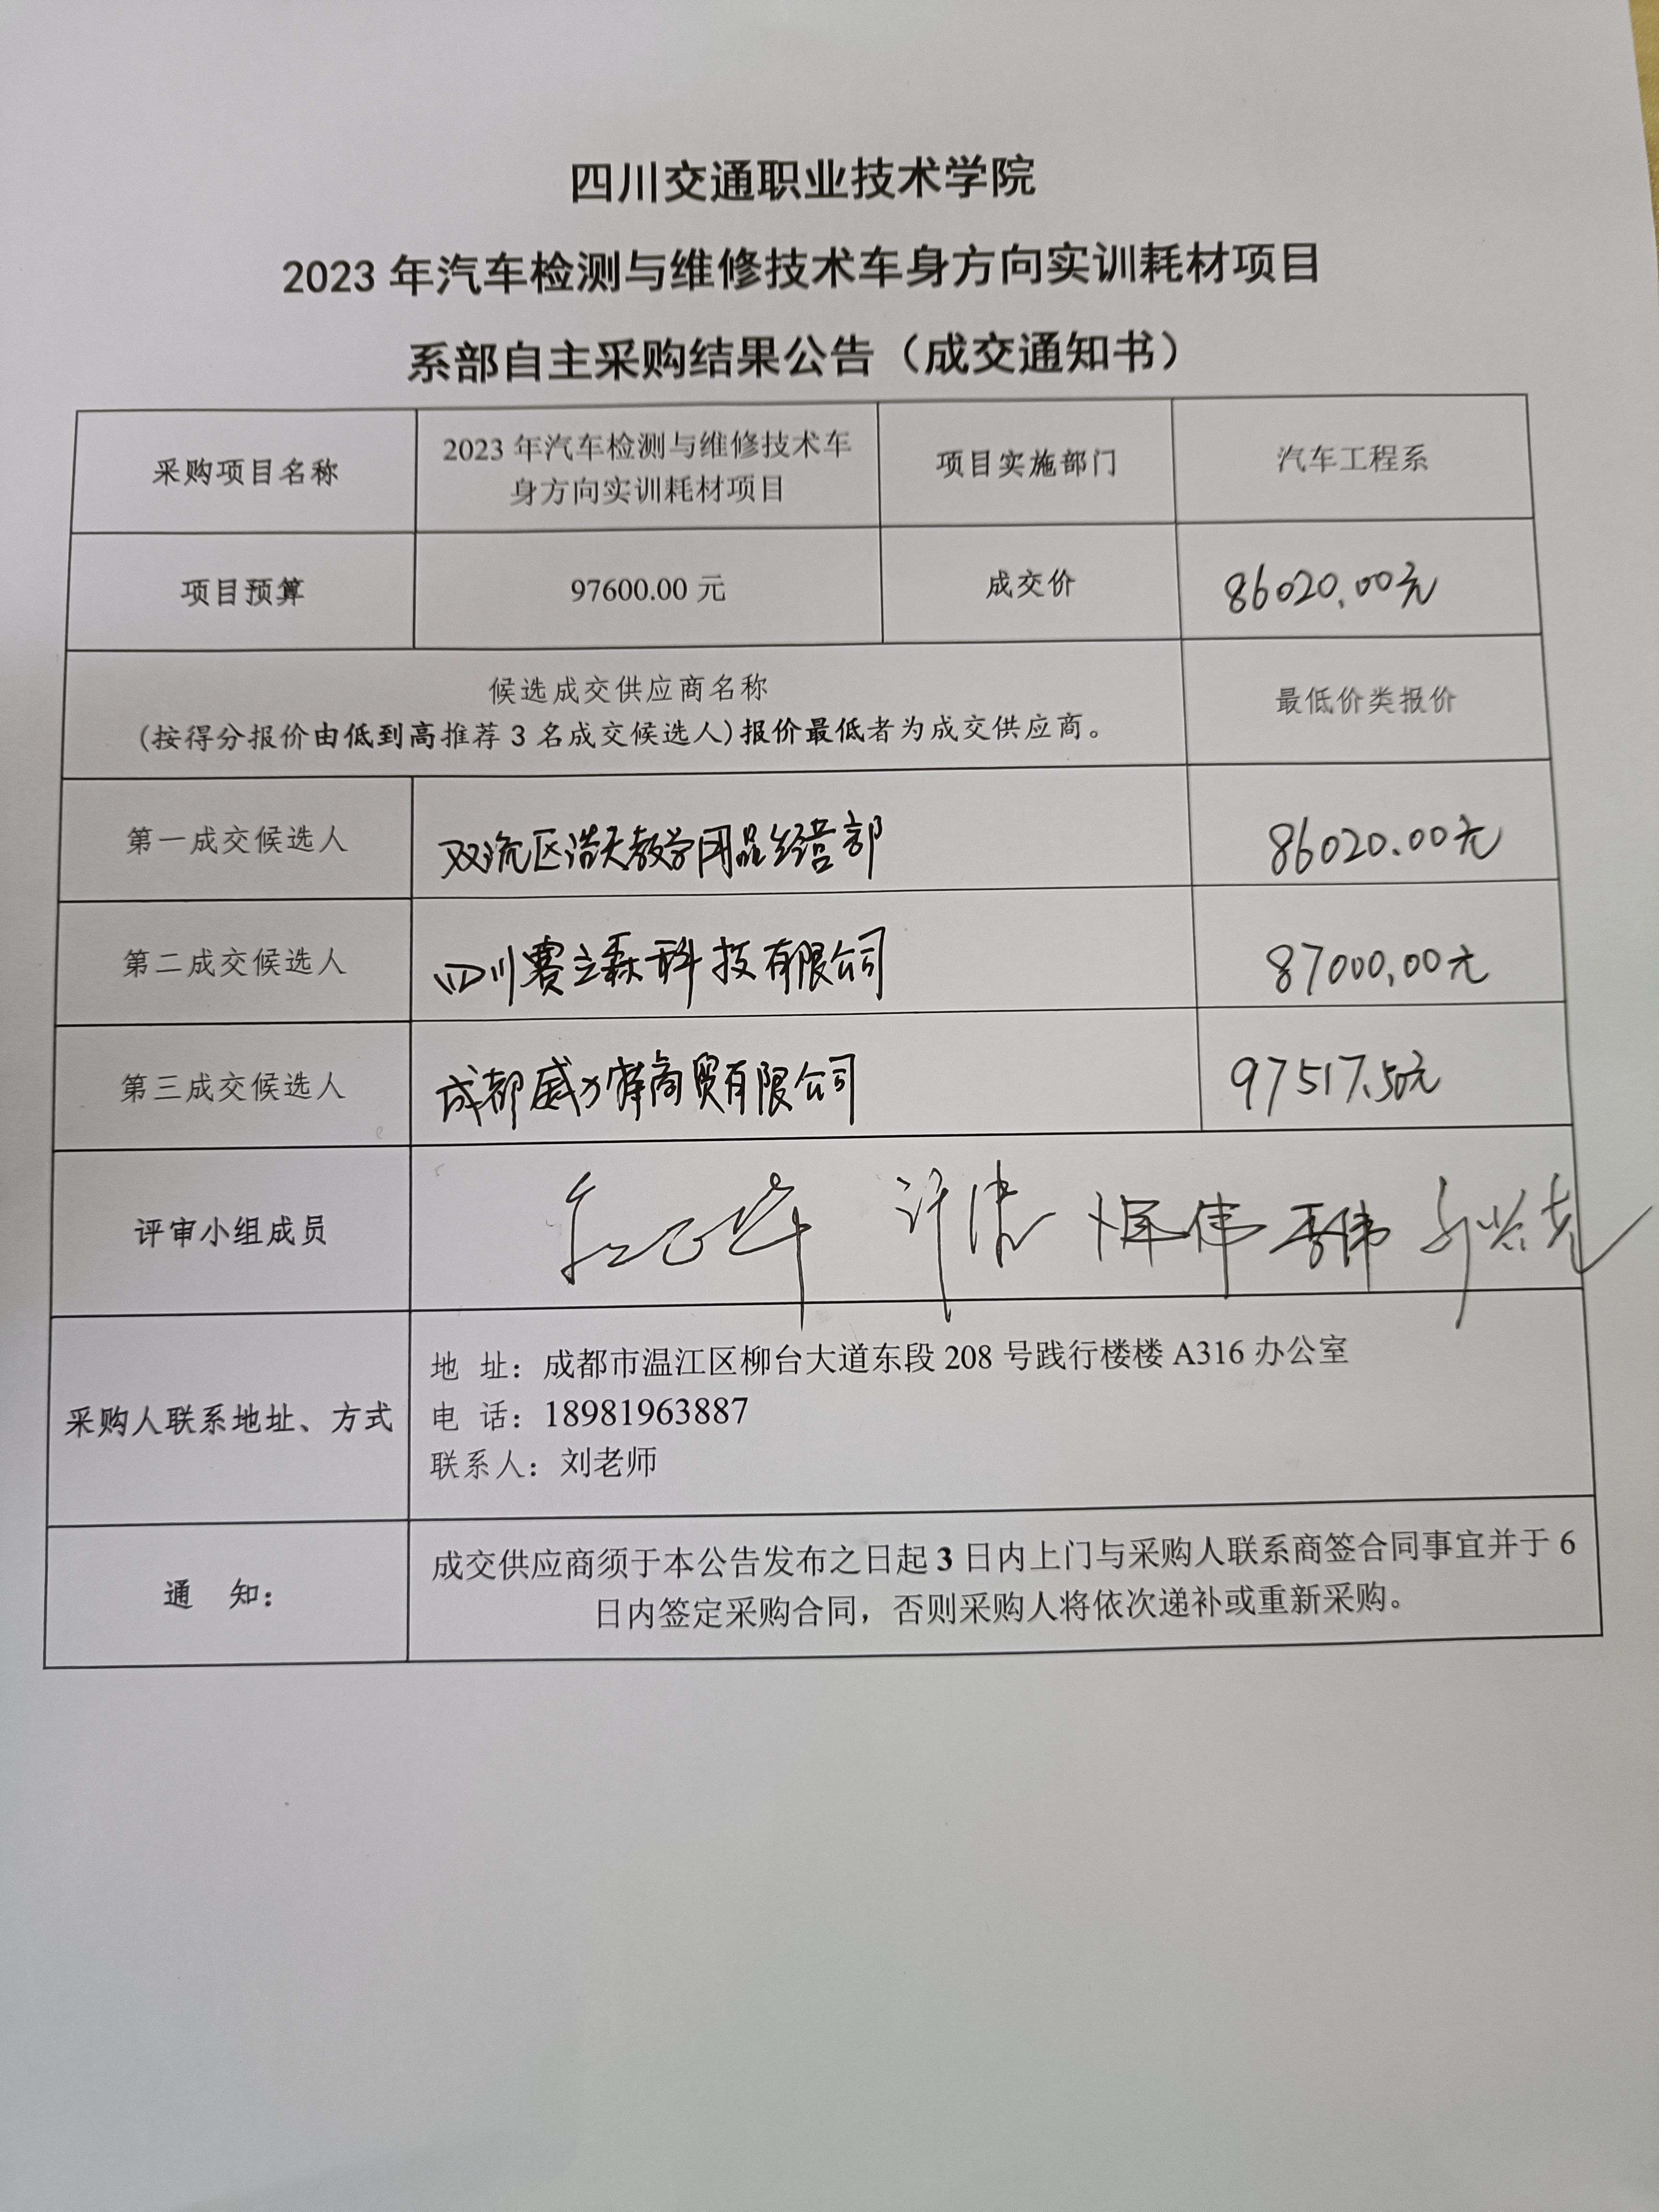 四川交通职业技术学院
2023 年汽车检测与维修技术车身方向实训耗材项目
系部自主采购结果公告（成交通知书）
采购项目名称
2023 年汽车检测与维修技术车
身方向实训耗材项目
项目实施部门
汽车工程系
项目预算
97600.00 元
成交价
86020.00元
候选成交供应商名称
(按得分报价由低到高推荐 3 名成交候选人)报价最低者为成交供应商。
最低价类报价
第一成交候选人
双流区浩天教学用品经营部
86020.00元
第二成交候选人
四川赛立森科技有限公司
87000.00元
第三成交候选人
成都威力 商贸有限公司
97517.50元
评审小组成员
采购人联系地址、方式
地 址：成都市温江区柳台大道东段 208 号践行楼楼 A316 办公室
电 话：18981963887
联系人：刘老师
通 知：
成交供应商须于本公告发布之日起 3 日内上门与采购人联系商签合同事宜并于 6
日内签定采购合同，否则采购人将依次递补或重新采购。